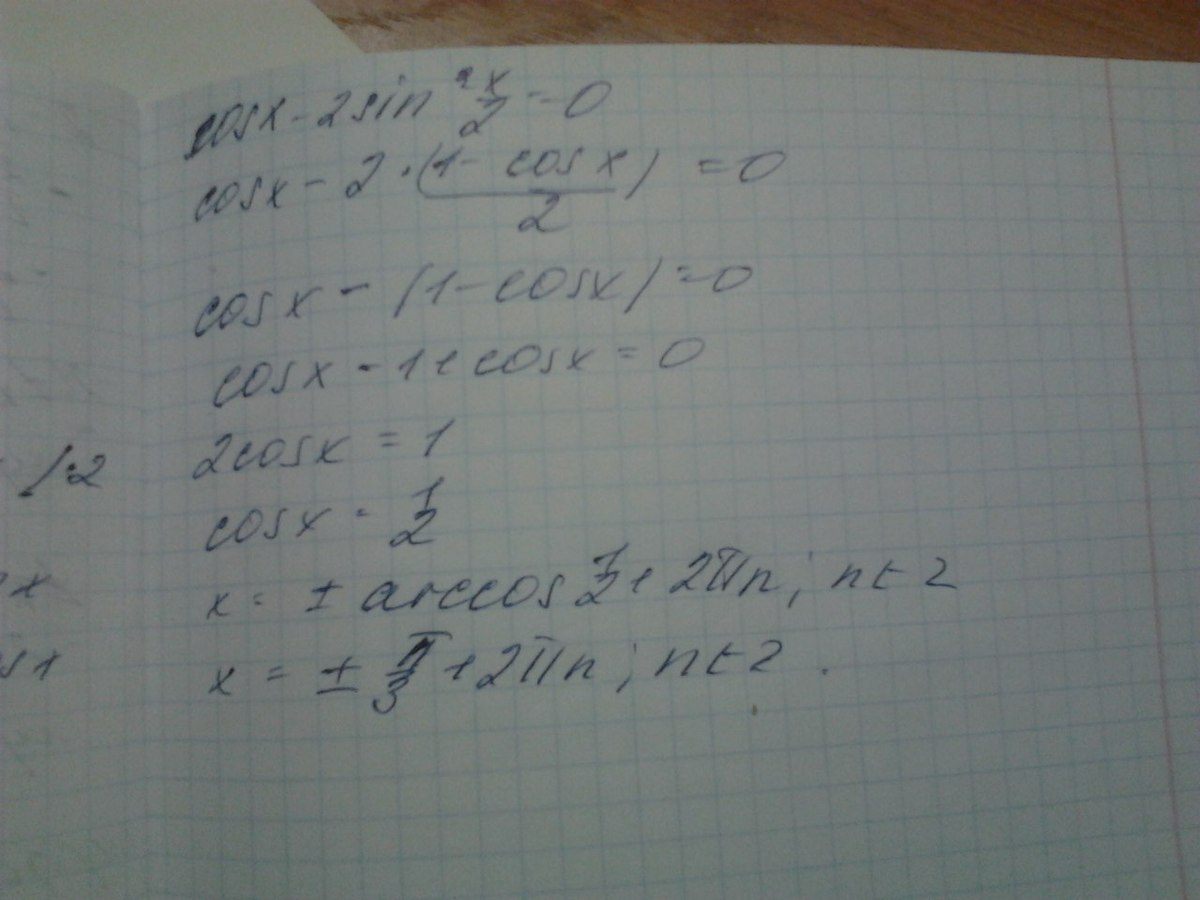 cosx - 2sin² x/2 = 0
cosx - 2 · (1 - cosx)/2 = 0
cosx - (1 - cosx) = 0
cosx - 1 + cosx = 0
2cosx = 1
/:2
cosx = 1/2
x = ± arccos 1/2 + 2πn; n ∈ Z
x
x = ± π/3 + 2πn; n ∈ Z.
sx